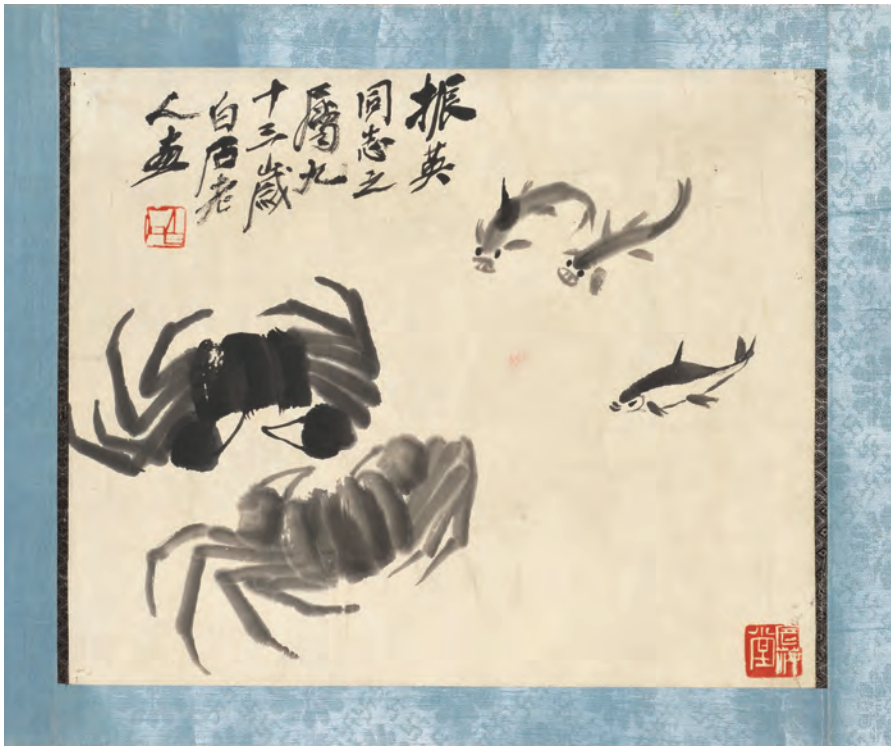 振英
同志之
屬九
十三歲
白石老
人畫
白石